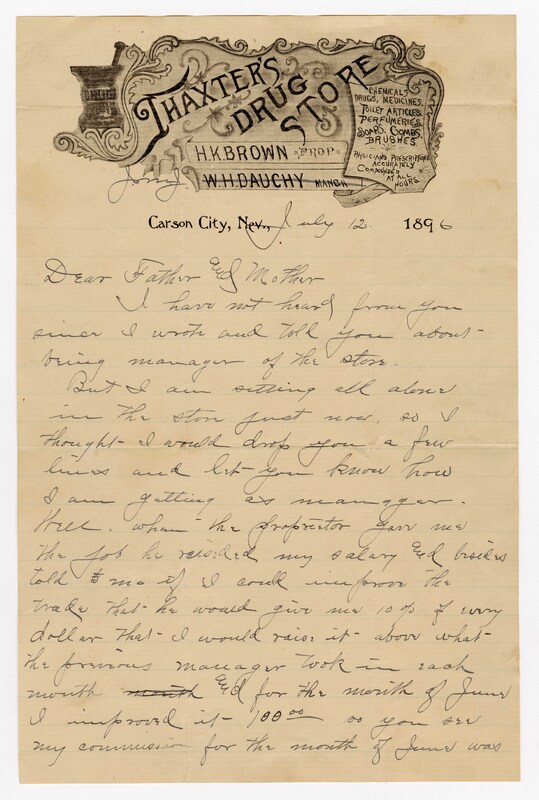 DRUGS
THAXTER'S
DRUG
STORE
CHEMICALS,
DRUGS, MEDICINES,
TOILET ARTICLES,
PERFUMERIES,
SOAPS, COMBS,
BRUSHES.
PHYSICIANS PRESCRIPTIONS
ACCURATELY
COMPOUNDED
AT ALL
HOURS.
H.K. BROWN PROP.
W.H. DAUCHY MANGR
Carson City, Nev., July 12 1896
Dear Father and Mother
I have not heard from you
since I wrote and told you about
being manager of the store.
But I am sitting all alone
in the store just now. so I
thought I would drop you a few
lines and let you know how
I am getting as manager.
Well. when the proprietor gave me
the job he raised my salary and besides
told me if I could improve the
trade that he would give me 10% of every
dollar that I would raise it above what
the previous manager took in each
month and for the month of June
I improved it 100 00 so you see
my commission for the month of June was